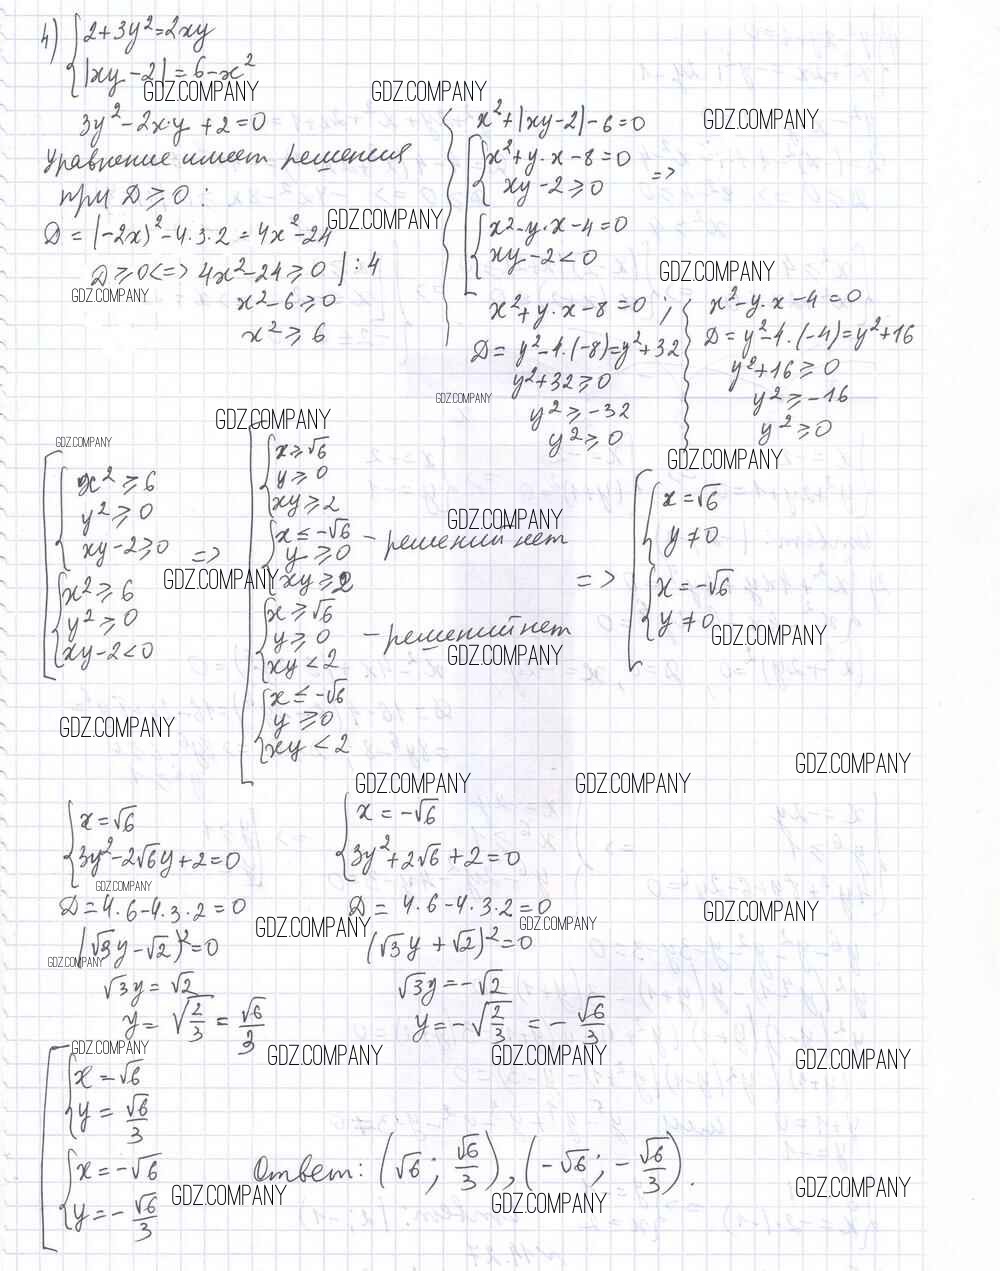 4) { 2+3y²=2xy
|xy-2|=6-x²
GDZ.COMPANY GDZ.COMPANY GDZ.COMPANY
3y²-2x·y+2=0
Уравнение имеет решения
при D≥0:
D=(-2x)²-4·3·2=4x²-24
D≥0<=> 4x²-24≥0 |:4
GDZ.COMPANY
x²-6≥0
x²≥6
x²+|xy-2|-6=0
[ { x²+y·x-8=0
xy-2≥0 =>
{ x²-y·x-4=0
xy-2<0
GDZ.COMPANY GDZ.COMPANY
x²+y·x-8=0;
D=y²-4·(-8)=y²+32
y²+32≥0
y²≥-32
y²≥0
x²-y·x-4=0
D=y²-4·(-4)=y²+16
y²+16≥0
y²≥-16
y²≥0
GDZ.COMPANY
GDZ.COMPANY
GDZ.COMPANY GDZ.COMPANY
[ { x²≥6
y²≥0
xy-2≥0 =>
{ x²≥6
y²≥0
xy-2<0
[ { x≥√6
y≥0
xy≥2
{ x≤-√6
y≥0 - решений нет
xy≥2
{ x≥√6
y≥0 - решений нет
xy<2
{ x≤-√6
y≥0
xy<2
GDZ.COMPANY GDZ.COMPANY
=> [ { x=√6
y≠0
{ x=-√6
y≠0
GDZ.COMPANY GDZ.COMPANY
GDZ.COMPANY
GDZ.COMPANY GDZ.COMPANY GDZ.COMPANY
{ x=√6
3y²-2√6y+2=0
GDZ.COMPANY
D=4·6-4·3·2=0
(√3y-√2)²=0
GDZ.COMPANY
√3y=√2
y=√(2/3)=√6/3
{ x=-√6
3y²+2√6+2=0
D=4·6-4·3·2=0
GDZ.COMPANY GDZ.COMPANY GDZ.COMPANY
(√3y+√2)²=0
√3y=-√2
y=-√(2/3)=-√6/3
GDZ.COMPANY GDZ.COMPANY GDZ.COMPANY GDZ.COMPANY
[ { x=√6
y=√6/3
{ x=-√6
y=-√6/3
Ответ: (√6; √6/3), (-√6; -√6/3).
GDZ.COMPANY GDZ.COMPANY GDZ.COMPANY